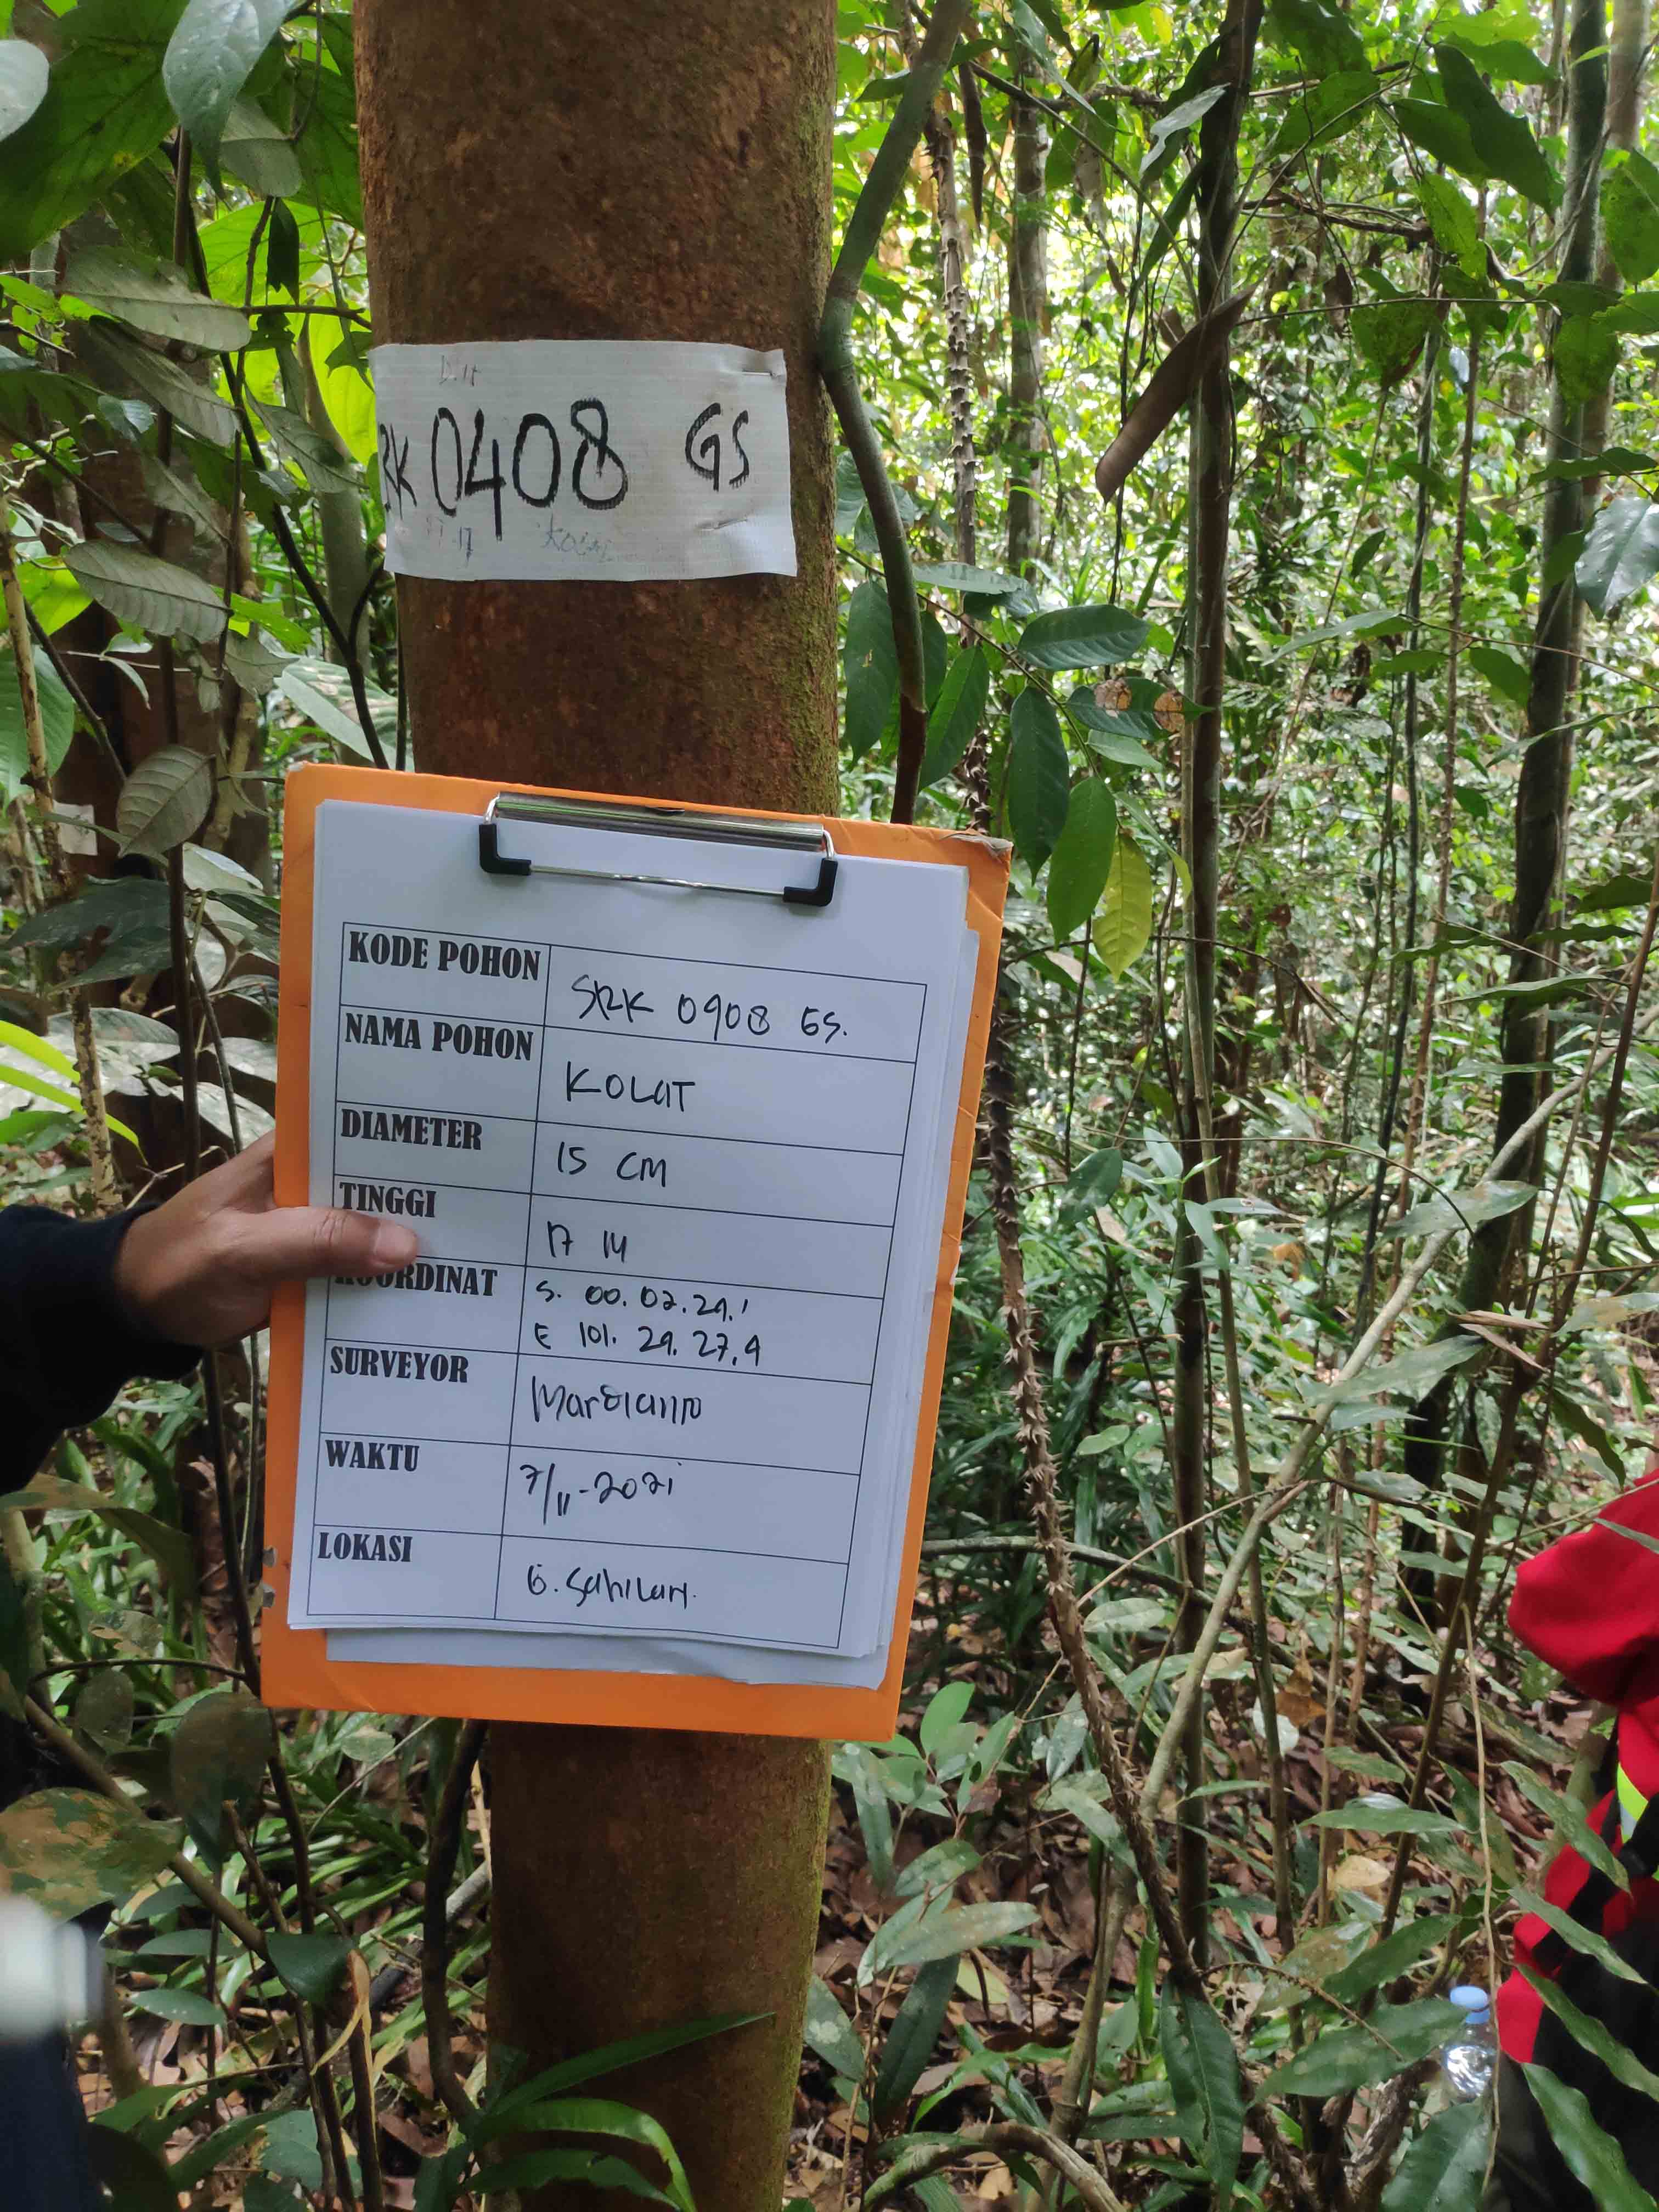 RK 0408 GS
KODE POHON SRK 0408 GS.
NAMA POHON KOLAT
DIAMETER 15 CM
TINGGI 17 M
KOORDINAT S. 00. 02. 29.1
E 101. 29. 27,4
SURVEYOR Mardianto
WAKTU 7/11-2021
LOKASI G. Sahilan.